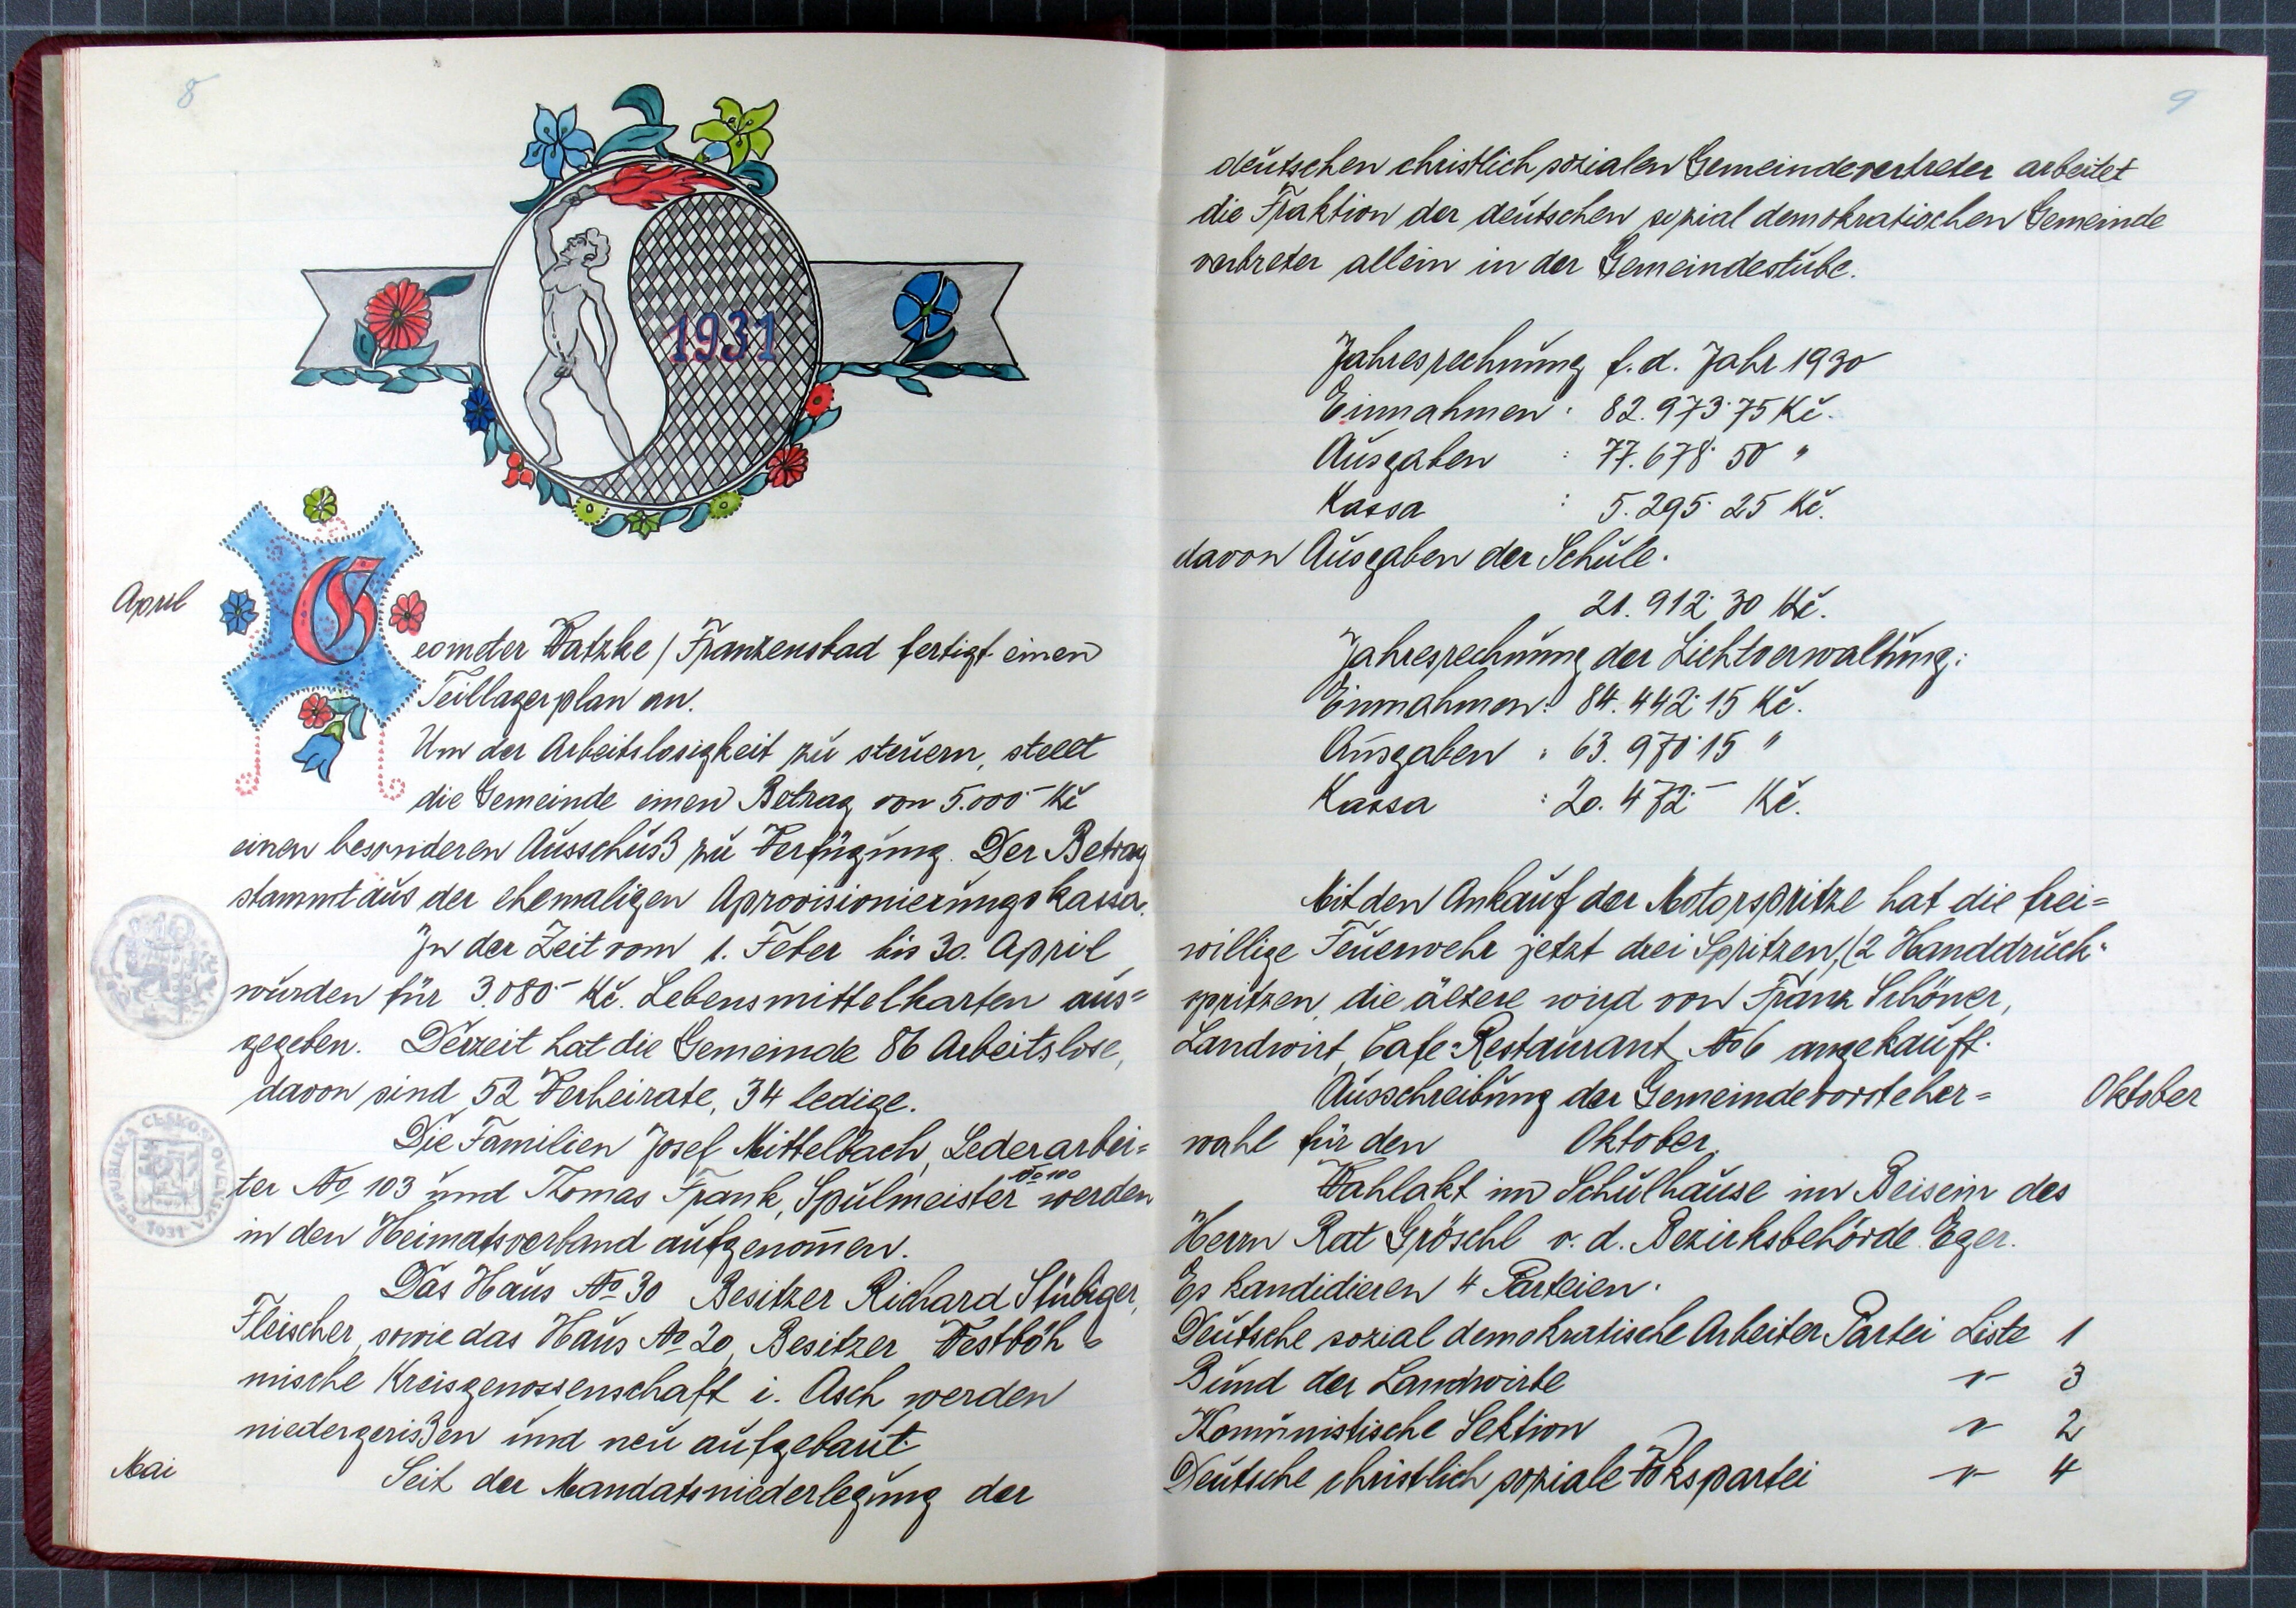 8
1931
April
Geometer Watzke / Franzensbad fertigt einen
Teillagerplan an.
Um der Arbeitslosigkeit zu steuern, stellt
die Gemeinde einen Betrag von 5.000·– Kč
einen besonderen Ausschuß zu Verfügung. Der Betrag
stammt aus der ehemaligen Aprovisionierungskassa.
In der Zeit vom 1. Feber bis 30. April
wurden für 3.080·– Kč. Lebensmittelkarten aus=
gegeben. Derzeit hat die Gemeinde 86 Arbeitslose,
davon sind 52 Verheirate, 34 ledige.
Die Familien Josef Mittelbach, Lederarbei=
ter No 103 und Thomas Frank, Spulmeister No 100 werden
in den Heimatsverband aufgenom̄en.
Das Haus No 30 Besitzer Richard Stübiger,
Fleischer, sowie das Haus No 20, Besitzer Westböh=
mische Kreisgenossenschaft i. Asch werden
niedergerißen und neu aufgebaut.
Mai
Seit der Mandatsniederlegung der
REPUBLIKA ČESKOSLOVENSKÁ
1931
9
deutschen christlich sozialen Gemeindevertreter arbeitet
die Fraktion der deutschen sozial demokratischen Gemeinde
vertreter allein in der Gemeindestube.
Jahresrechnung f. d. Jahr 1930
Einnahmen : 82.973·75 Kč.
Ausgaben : 77.678·50 "
Kassa : 5.295·25 Kč.
davon Ausgaben der Schule.
21.912·30 Kč.
Jahresrechnung der Lichtverwaltung:
Einnahmen: 84.442·15 Kč.
Ausgaben : 63.970·15 "
Kassa : 20.472·– Kč.
Mit den Ankauf der Motorspritze hat die frei=
willige Feuerwehr jetzt drei Spritzen, (2 Handdruck=
spritzen, die ältere wird von Franz Schöner,
Landwirt, Cafe=Restaurant No 6 angekauft.
Ausschreibung der Gemeindevorsteher=
Oktober
wahl für den Oktober.
Wahlakt im Schulhause im Beisein des
Herrn Rat Gröschl v. d. Bezirksbehörde Eger.
Es kandidieren 4 Parteien.
Deutsche sozial demokratische Arbeiter Partei Liste 1
Bund der Landwirte " 3
Kom̄unistische Sektion " 2
Deutsche christlich soziale Vokspartei " 4